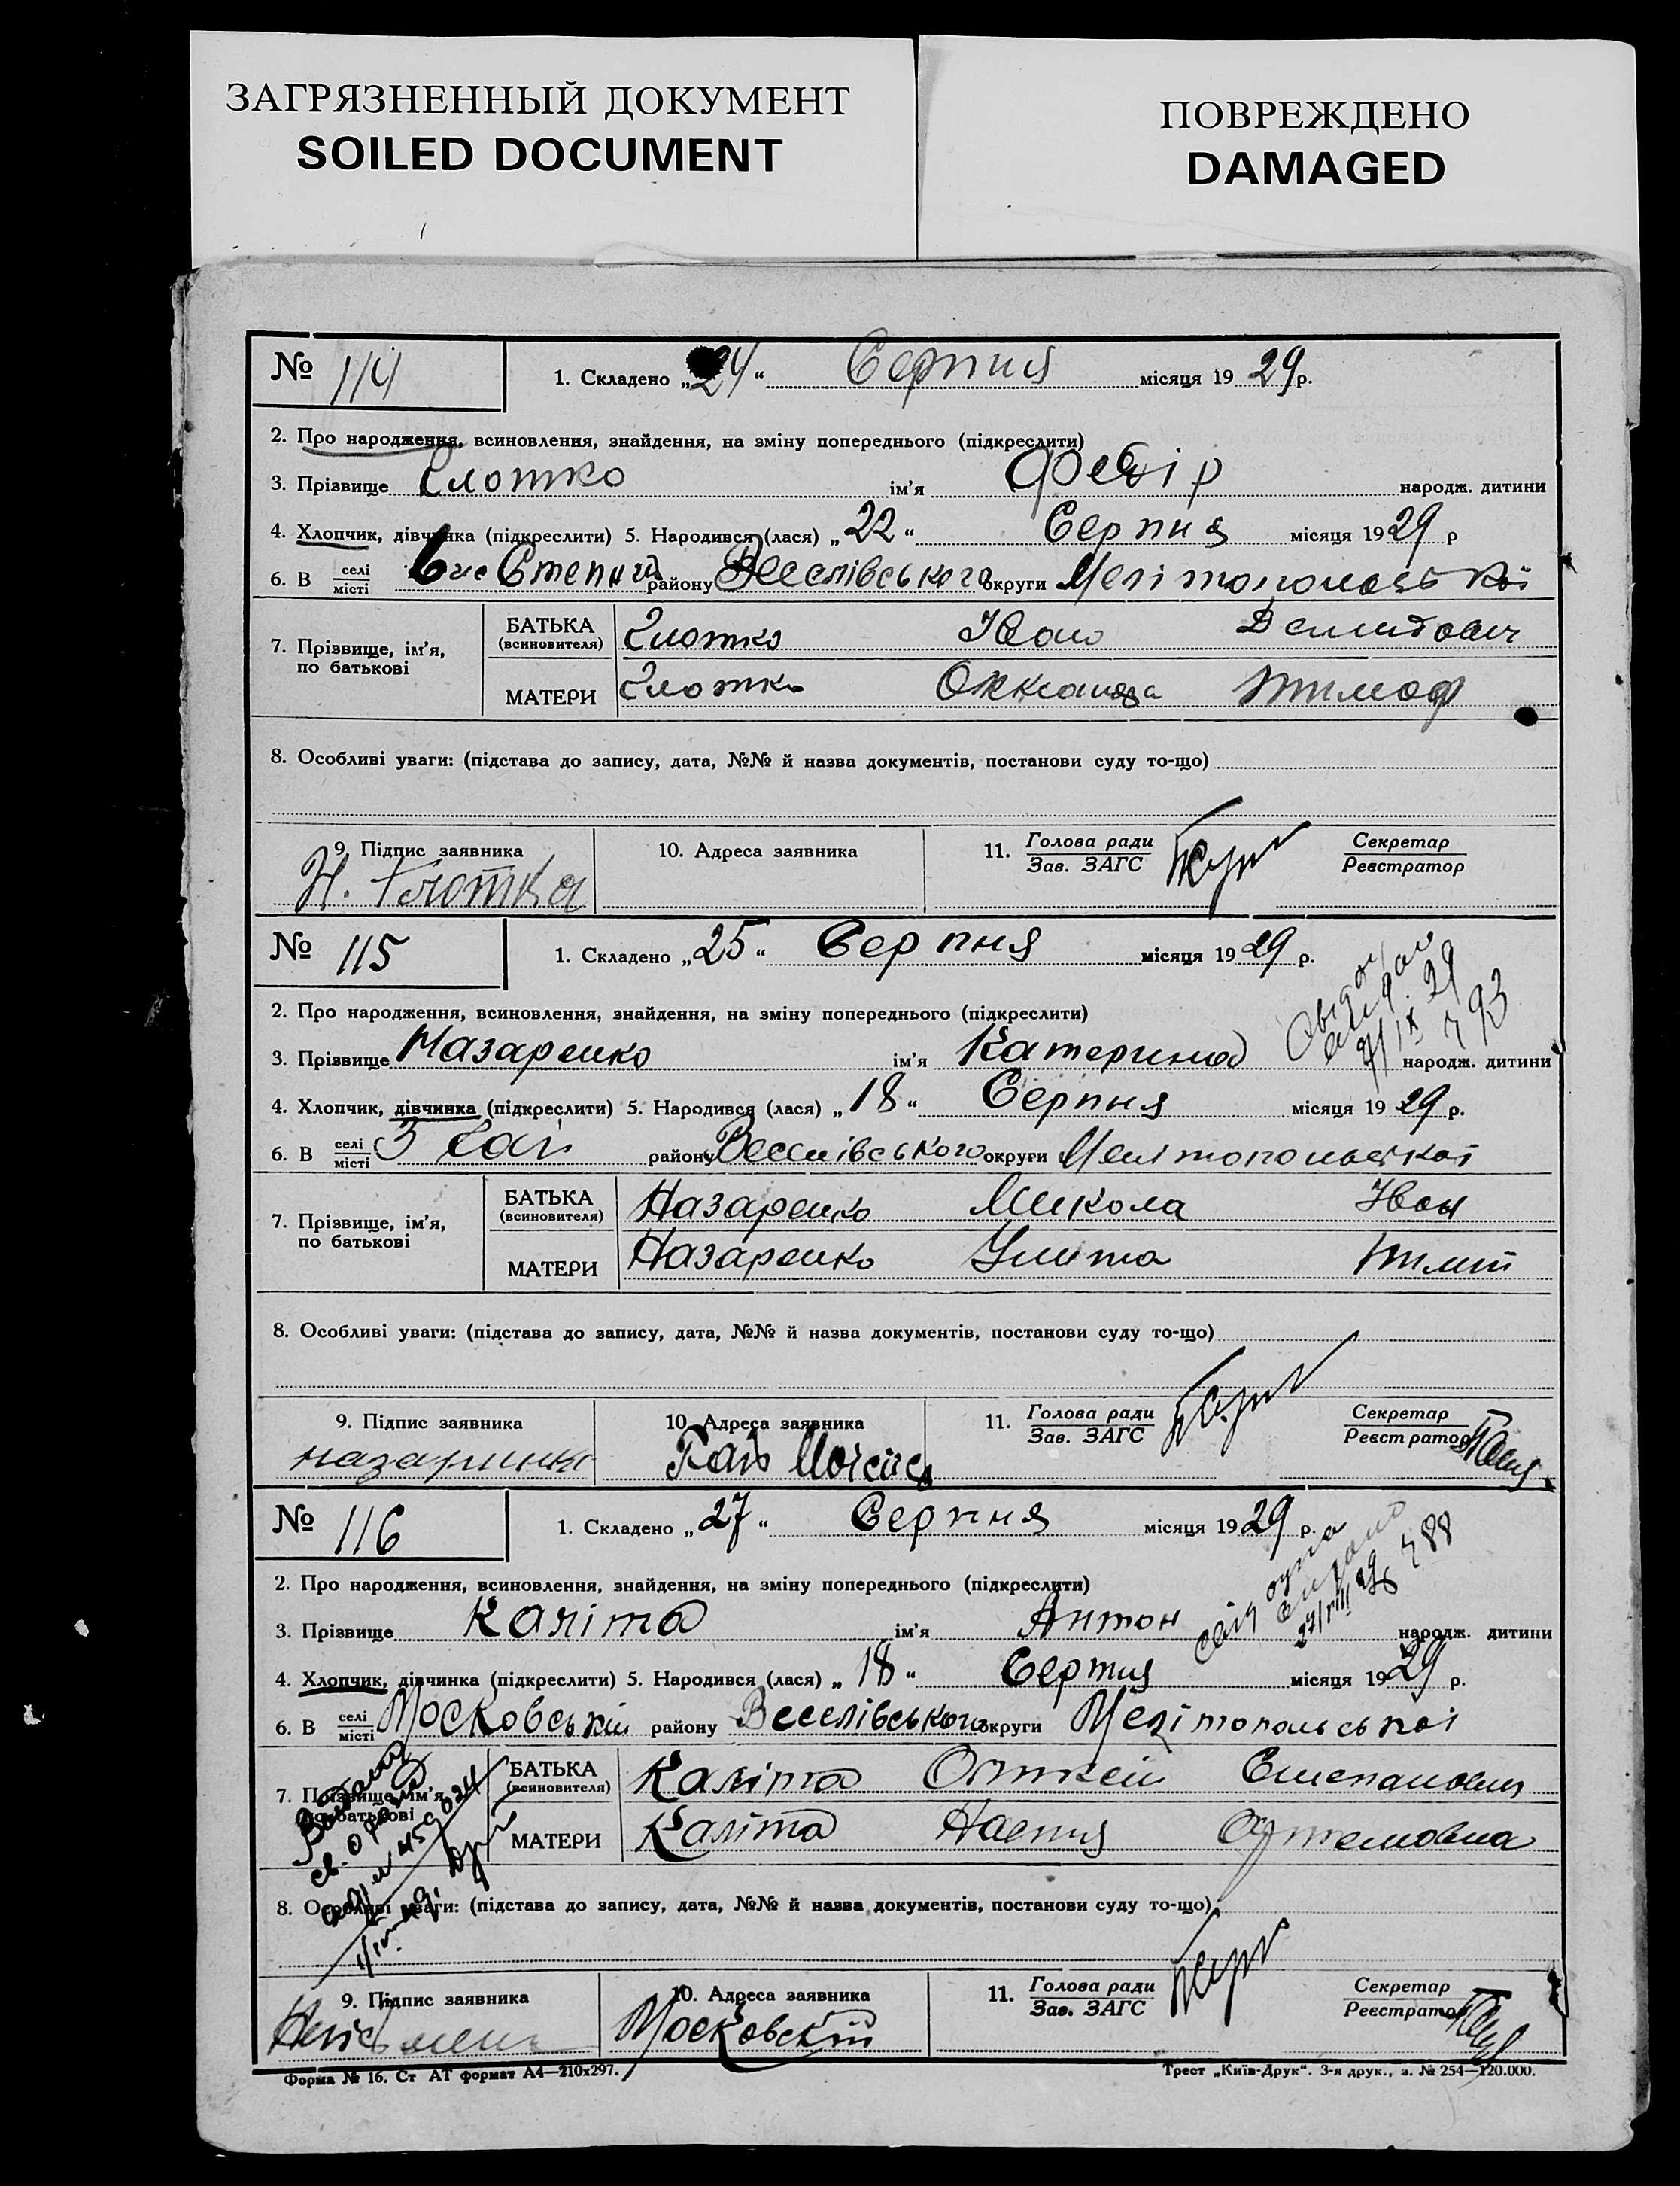 ЗАГРЯЗНЕННЫЙ ДОКУМЕНТ
SOILED DOCUMENT
ПОВРЕЖДЕНО
DAMAGED
№ 114
1. Складено „24“ Серпня місяця 1929р.
2. Про народження, всиновлення, знайдення, на зміну попереднього (підкреслити)
3. Прізвище Глотко ім'я Федір народж. дитини
4. Хлопчик, дівчинка (підкреслити) 5. Народився (лася) „22“ Серпня місяця 1929 р
6. В селі місті району Веселівського округи Мелітопольської
7. Прізвище, ім'я, по батькові
БАТЬКА (всиновителя) Глотко Іван Демидович
МАТЕРИ Глотко Тимоф
8. Особливі уваги: (підстава до запису, дата, №№ й назва документів, постанови суду то-що)
9. Підпис заявника
10. Адреса заявника
11. Голова ради Зав. ЗАГС
Секретар Реєстратор
Н. Глотка
№ 115
1. Складено „25“ Серпня місяця 1929 р.
2. Про народження, всиновлення, знайдення, на зміну попереднього (підкреслити)
3. Прізвище Назаренко ім'я Катерина народж. дитини
4. Хлопчик, дівчинка (підкреслити) 5. Народився (лася) „18“ Серпня місяця 1929 р.
6. В селі місті району Веселівського округи Мелітопольської
7. Прізвище, ім'я, по батькові
БАТЬКА (всиновителя) Назаренко Микола Іван
МАТЕРИ Назаренко Улита
8. Особливі уваги: (підстава до запису, дата, №№ й назва документів, постанови суду то-що)
9. Підпис заявника
10. Адреса заявника
11. Голова ради Зав. ЗАГС
Секретар Реєстратор
назаринко
№ 116
1. Складено „27“ Серпня місяця 1929 р.
2. Про народження, всиновлення, знайдення, на зміну попереднього (підкреслити)
3. Прізвище Каліта ім'я Антон народж. дитини
4. Хлопчик, дівчинка (підкреслити) 5. Народився (лася) „18“ Серпня місяця 1929 р.
6. В селі місті Московській району Веселівського округи Мелітопольської
7. Прізвище, ім'я, по батькові
БАТЬКА (всиновителя) Каліта Степанович
МАТЕРИ Каліта Настя Артемовна
8. Особливі уваги: (підстава до запису, дата, №№ й назва документів, постанови суду то-що)
9. Підпис заявника
10. Адреса заявника
11. Голова ради Зав. ЗАГС
Секретар Реєстратор
Форма № 16. Ст АТ формат А4—210х297.
Трест „Київ-Друк“. 3-я друк., з. № 254—120.000.